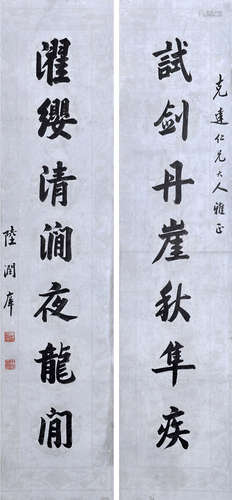 克達仁兄大人雅正
試劍丹崖秋隼疾
濯纓清澗夜龍閒
陸潤庠